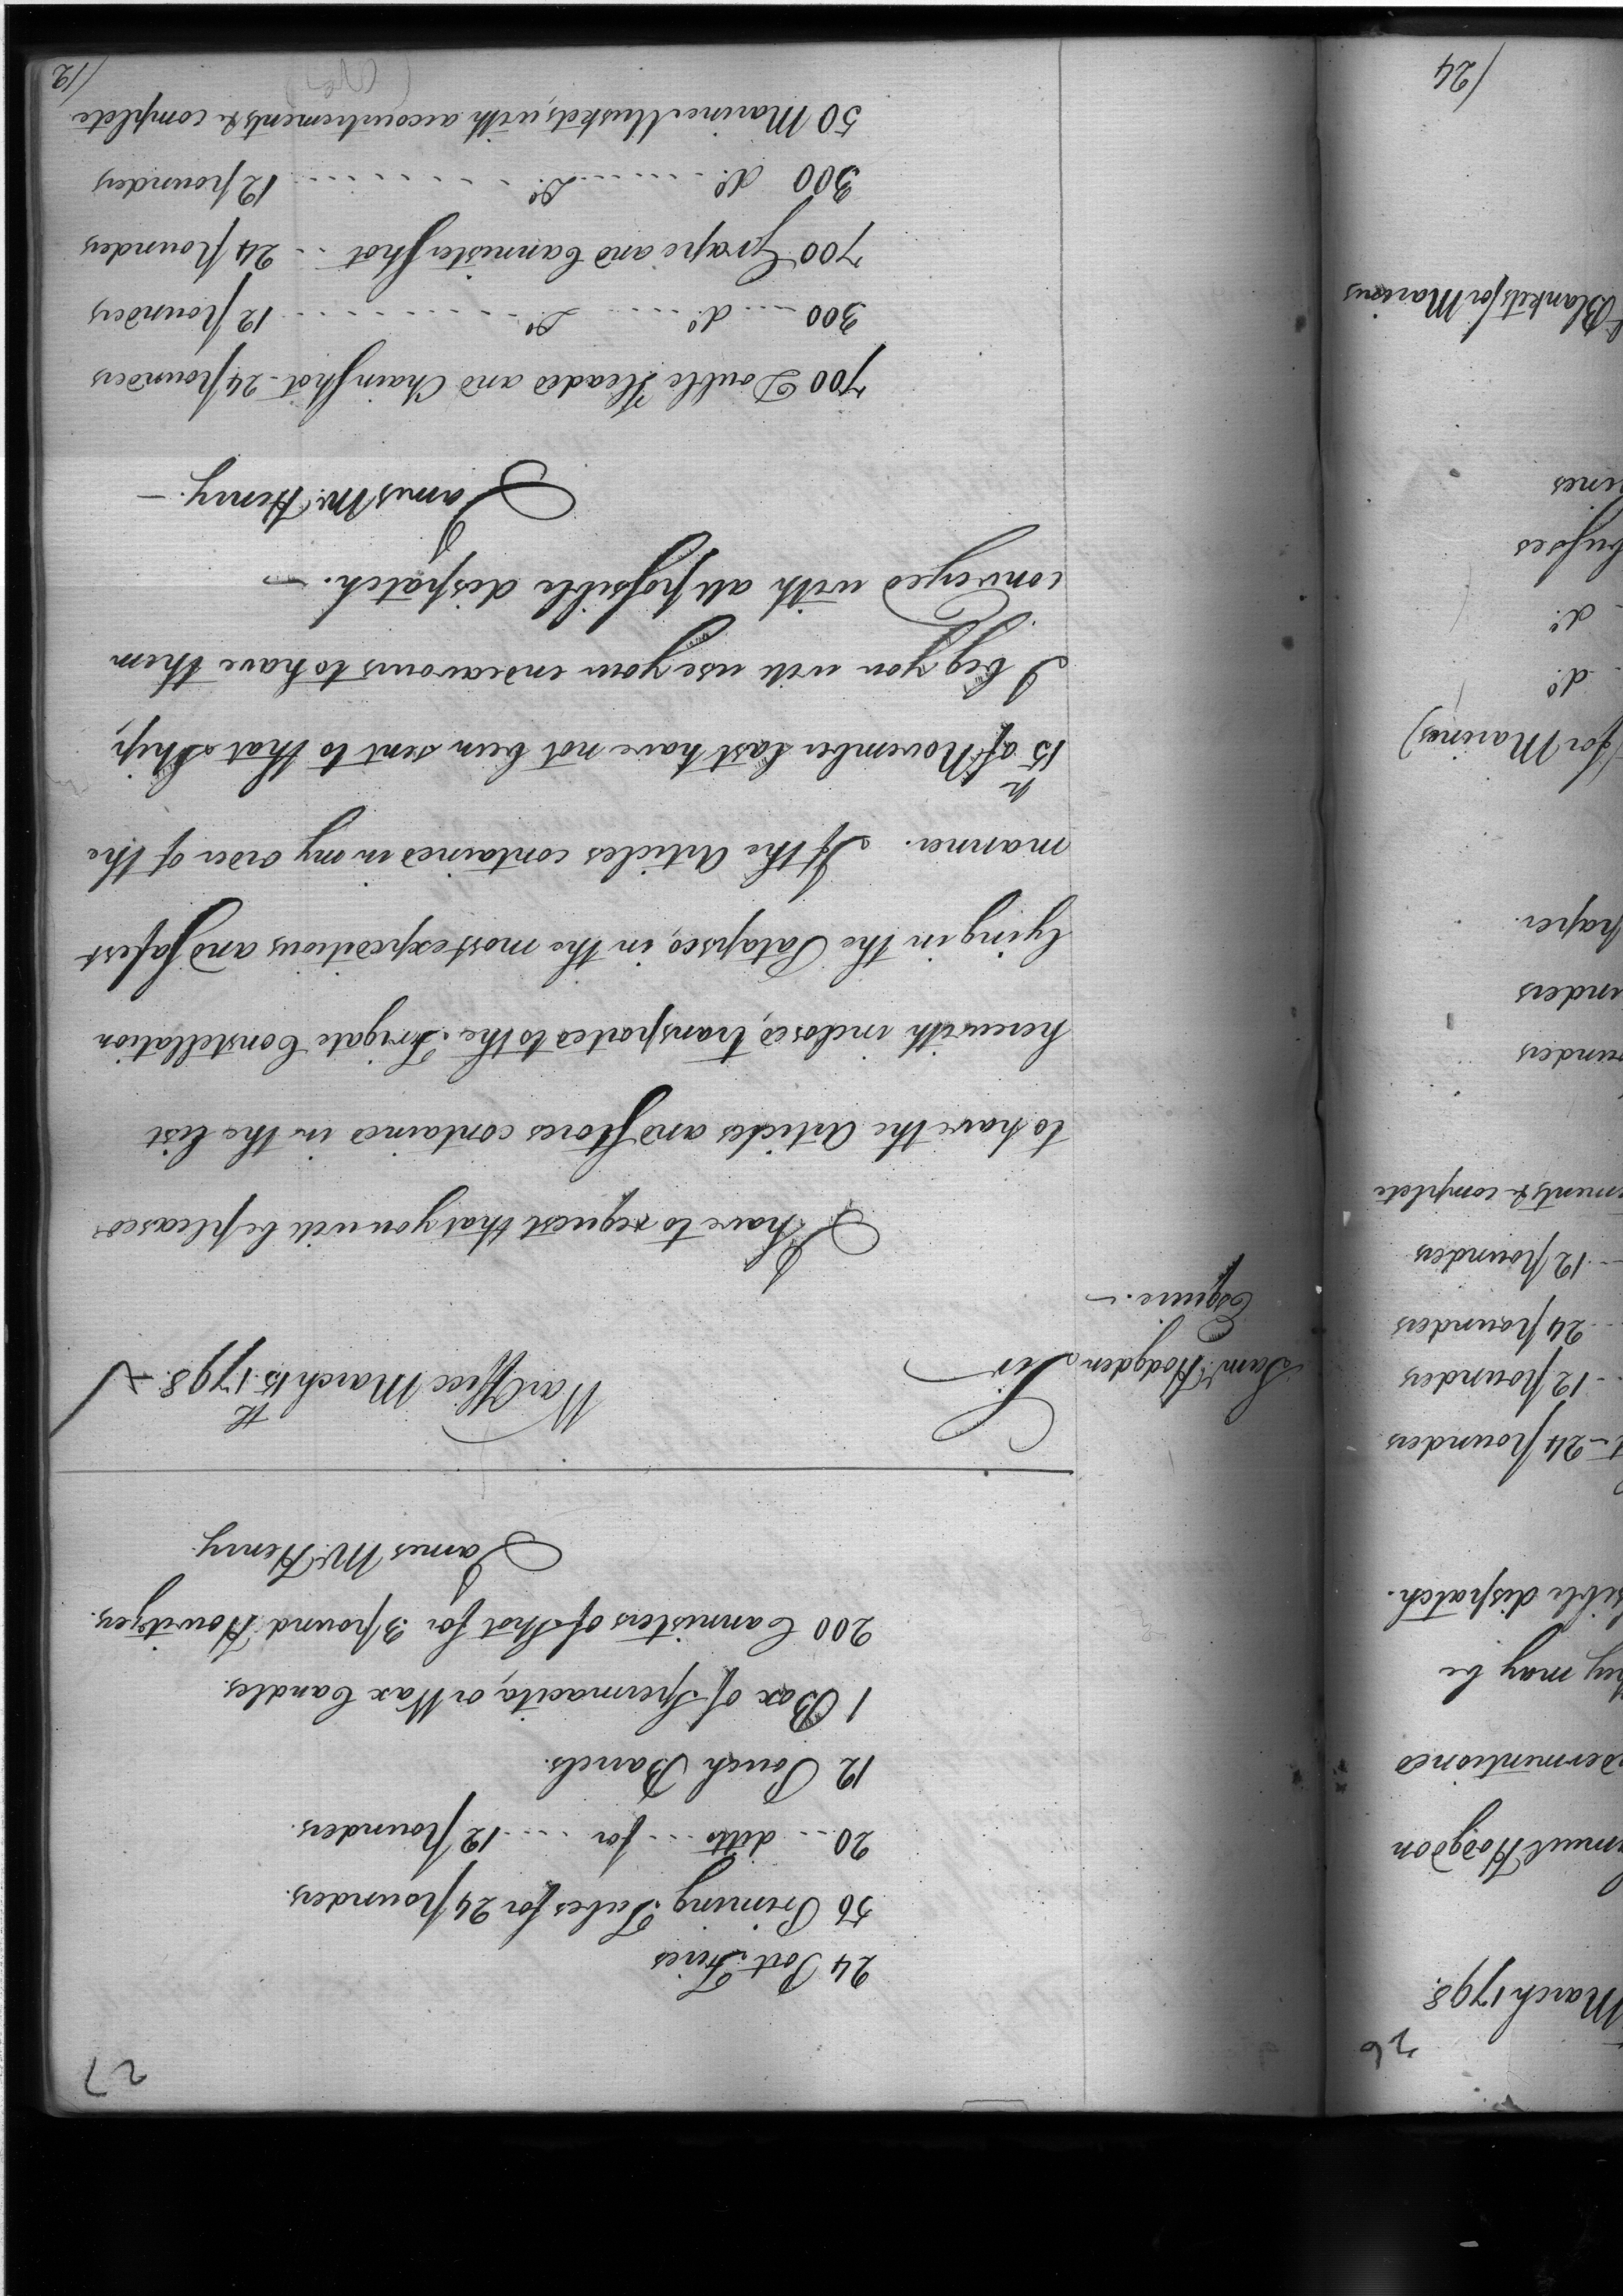 27
24 Port Fires
56 Priming Tubes for 24 pounders.
20 ... ditto ... for .... 12 pounders.
12 Pouch Barrels.
1 Box of Spermacita, or Wax Candles.
200 Cannisters of Shot for 3 pound Howitzers.
James McHenry.
War Office March 15th 1798.
Saml. Hodgden
Esquire.
Sir
I have to request that you will be pleased
to have the Articles and Stores contained in the list
herewith inclosed, transported to the Frigate Constellation
lying in the Patapsco, in the most expeditious and safest
manner. If the Articles contained in my order of the
15th of November last have not been sent to that Ship,
I beg you will use your endeavours to have them
conveyed with all possible dispatch.
James McHenry.
700 Double Headed and Chain Shot - 24 pounders
300 .... do. .... Do. .......... 12 pounders
700 Grape and Cannister Shot .. 24 pounders
300 do. ..... Do. .......... 12 pounders
50 Marine Muskets, with accoutrements & complete
12/
26
March 1798.
muel Hodgdon
dermentioned
hey may be
sible dispatch.
t - 24 pounders
.. 12 pounders
.. 24 pounders
... 12 pounders
ments & complete
unders
unders
paper.
(for Marines)
do.
do.
busses
ines
Blankets for Marines
/24